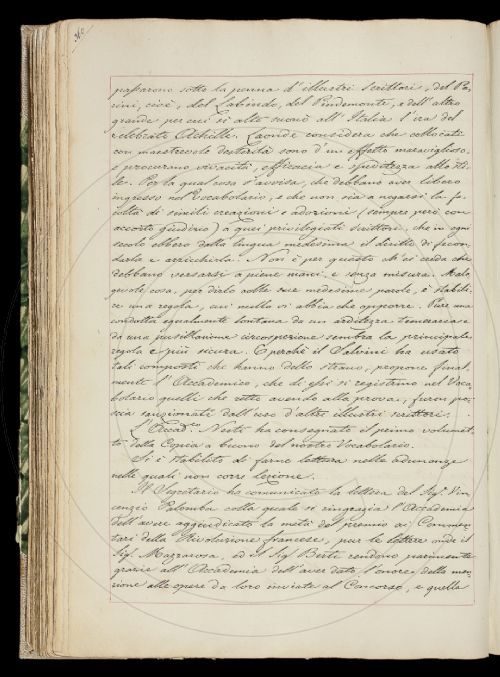 passarono sotto la penna d'illustri scrittori, del Pa-
rini, cioè, del Labindo, del Pindemonte, e dell'altro
grande per cui sì alta suonò all'Italia l'ira del
celebrato Achille. Laonde considera che collocati
con maestrevole desterità sono d'un effetto maraviglioso,
e procurano vivacità, efficacia e speditezza allo sti-
le. Per la qual cosa s'avvisa, che debbano aver libero
ingresso nel Vocabolario, e che non sia a negarsi la fa-
coltà di simili creazioni e adozioni (sempre però con
accorto giudizio) a quei privilegiati scrittori, che in ogni
secolo ebbero dalla lingua medesima il diritto di fecon-
darla e arricchirla. Non è per questo ch'ei creda che
debbano versarsi a piene mani, e senza misura. Mala-
gevole cosa, per dirlo colle sue medesime parole, è stabili-
re una regola, cui nulla vi abbia che opporre. Pure una
condotta egualmente lontana da un arditezza temeraria e
da una pusillanime circospezione sembra la principale
regola e più sicura. E perchè il Salvini ha usato
tali composti che hanno dello strano, propone final-
mente l'Accademico, che di essi si registrino nel Voca-
bolario quelli che retto avendo alla prova, furon po-
scia sanzionati dall'uso d'altri illustri scrittori.
L'Accad.co Nesti ha consegnato il primo volumet-
to della Copia a buono del nostro Vocabolario.
Si è stabilito di farne lettura nelle adunanze
nelle quali non corre lezione.
Il Segretario ha comunicato la lettera del Sig.r Vin-
cenzio Palomba colla quale si ringrazia l'Accademia
dell'avere aggiudicato la metà del premio ai Commen-
tari della Rivoluzione francese, pur le lettere onde il
Sig.r Mazzarosa, ed il Sig.r Berti rendono parimente
grazie all'Accademia dell'aver dato l'onore della men-
zione alle opere da loro inviate al Concorso, e quella